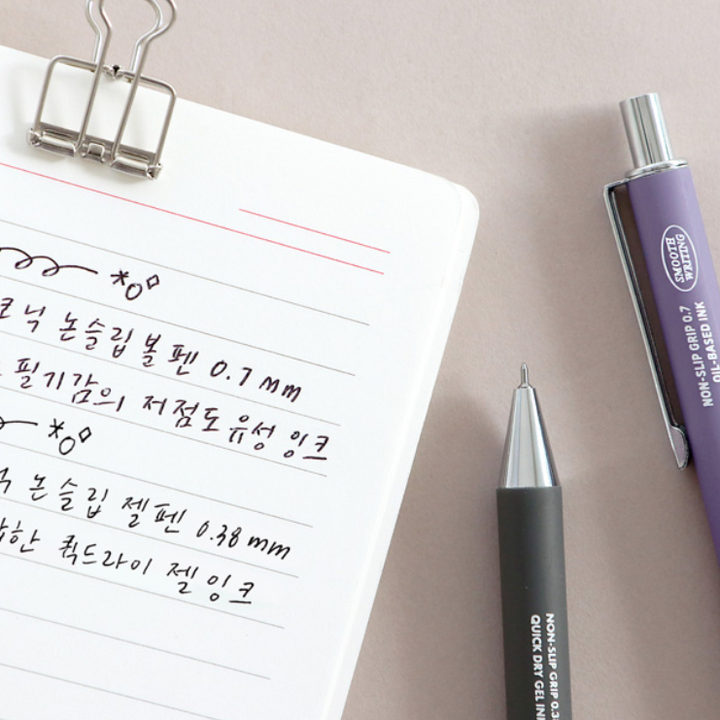 논슬립볼펜 0.7 mm
필기감의 저점도유성 잉크
논슬립 젤펜 0.38 mm
퀵드라이 젤잉크
SMOOTH
WRITING
NON-SLIP GRIP 0.7
OIL-BASED INK
NON-SLIP GRIP
QUICK DRY GEL